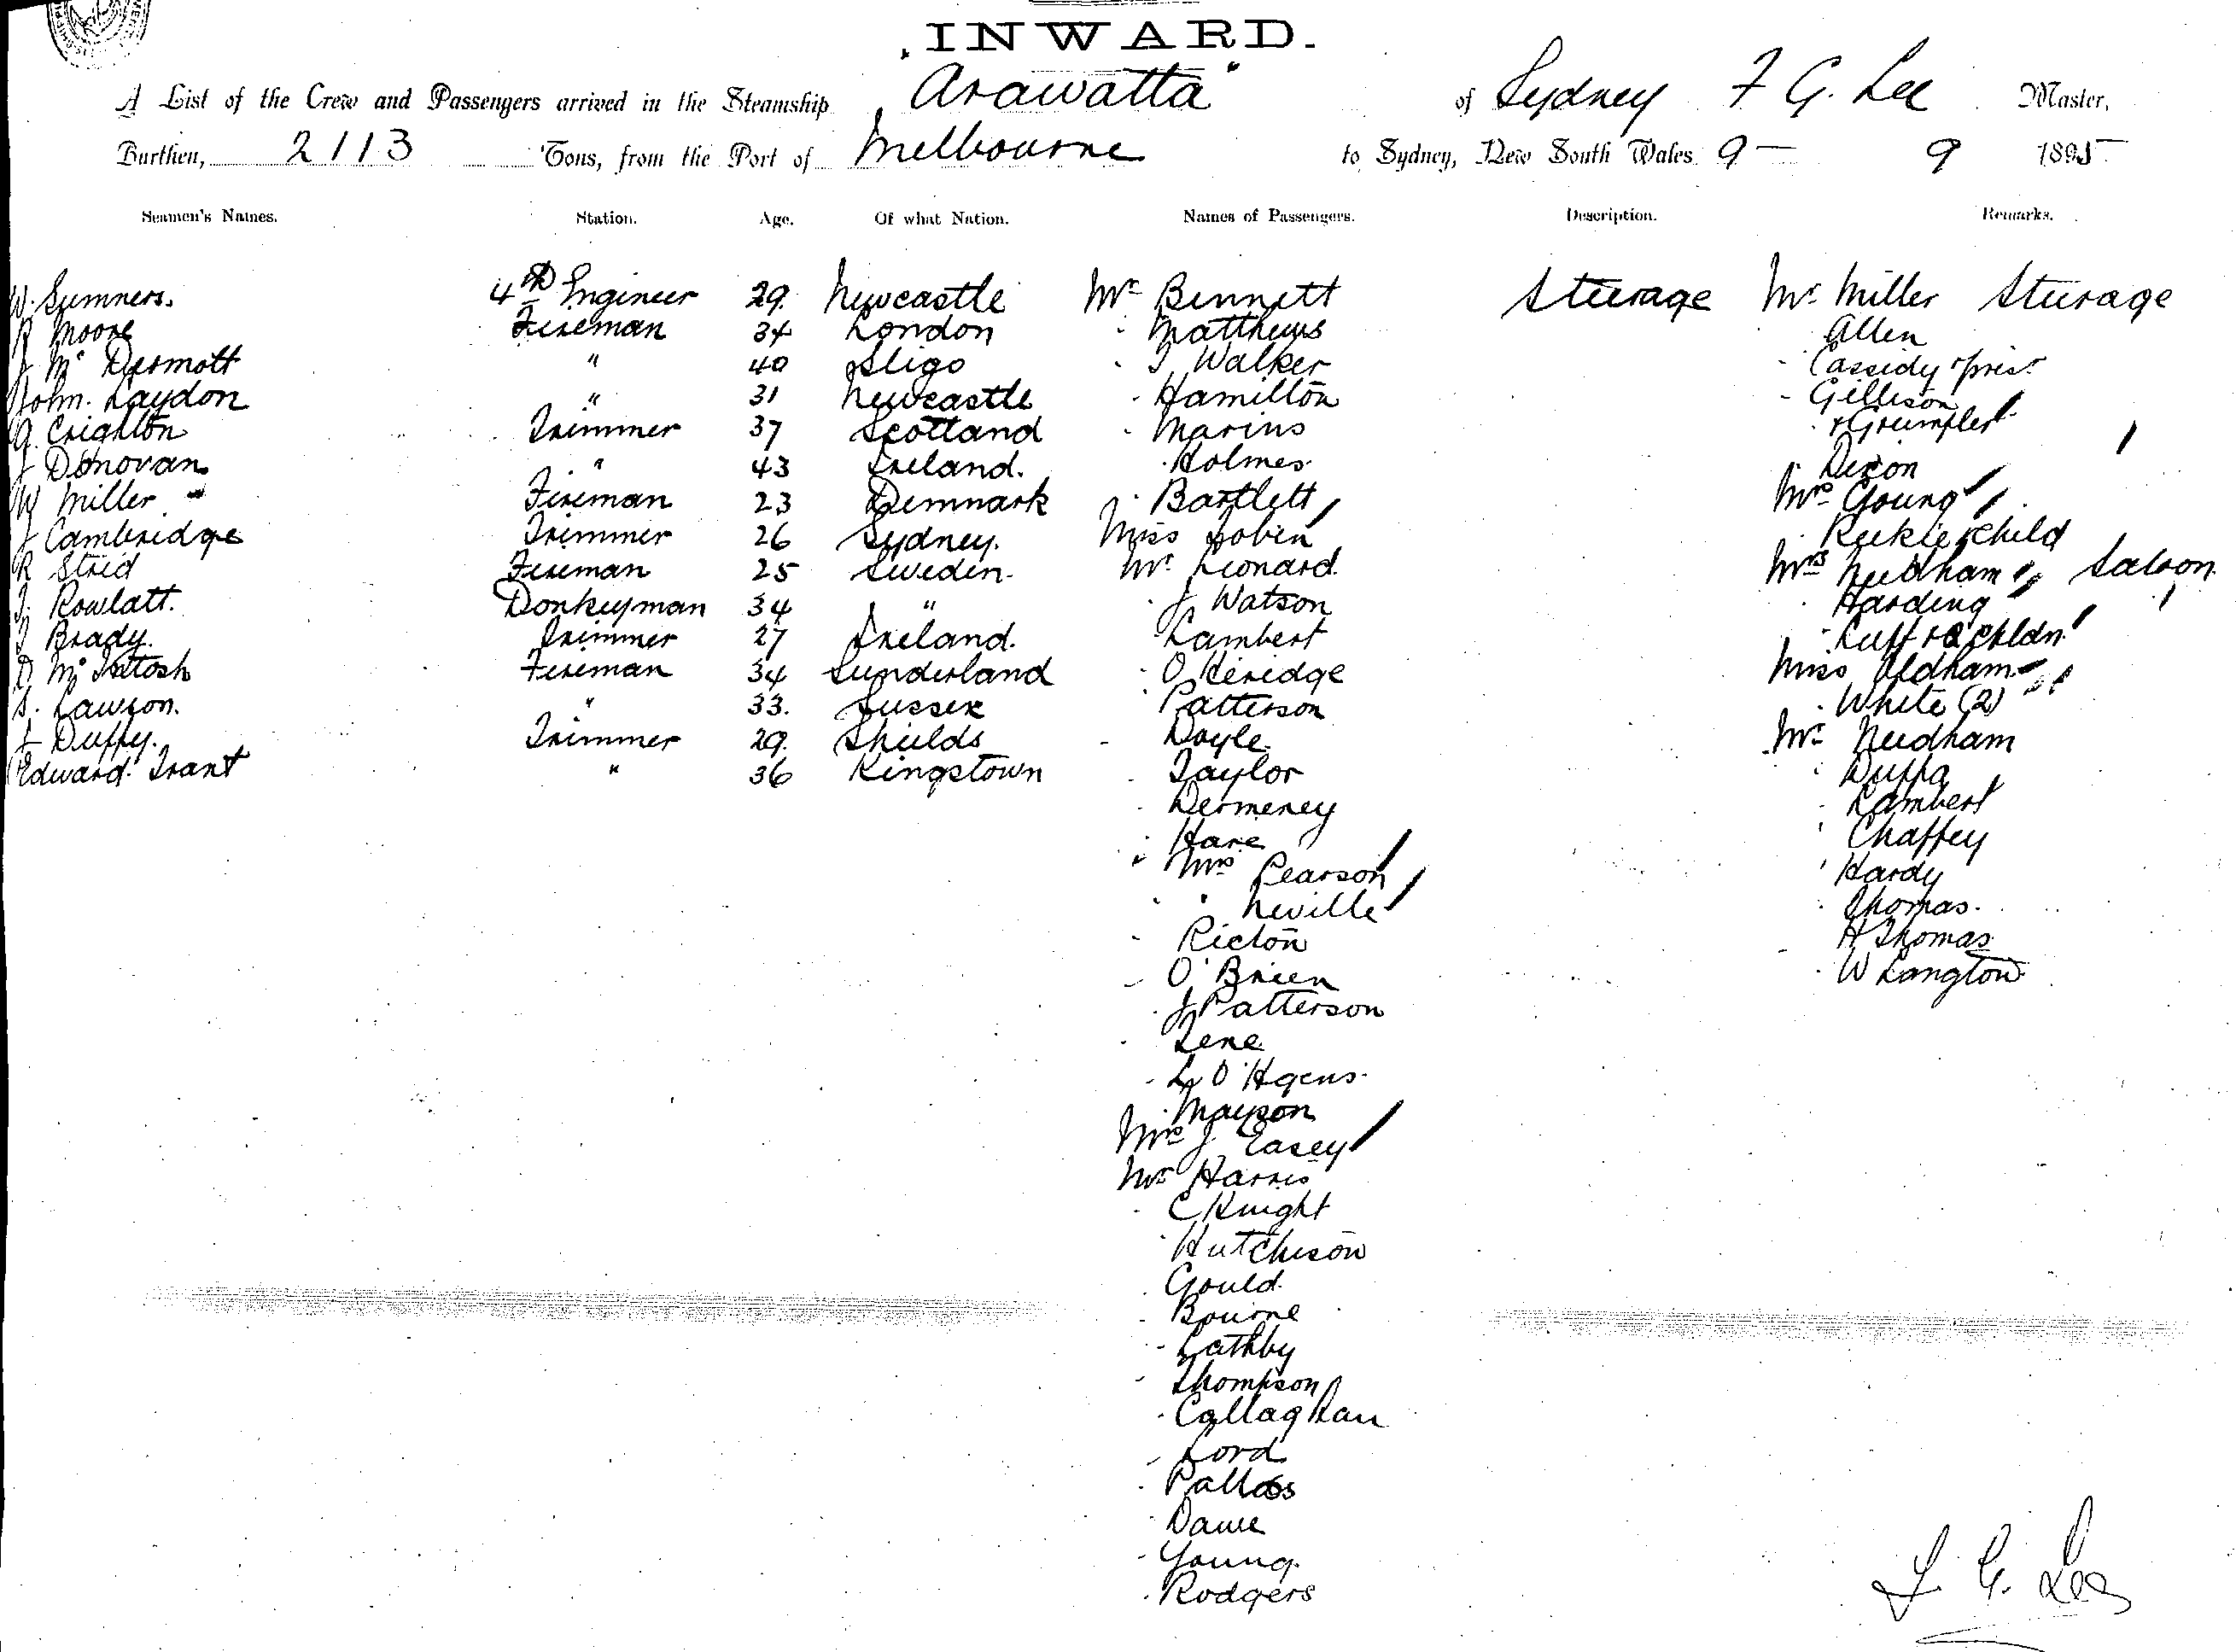 INWARD.
A List of the Crew and Passengers arrived in the Steamship "Arawatta" of Sydney F G. Lee Master,
Burthen, 2113 Tons, from the Port of Melbourne to Sydney, New South Wales 9 - 9 1895
Seamen's Names. Station. Age. Of what Nation. Names of Passengers. Description. Remarks.
W. Sumners. 4th Engineer 29. Newcastle Mr Bennett Steerage Mr Miller Steerage
R Moore Fireman 34 London " Matthews Allen
J Mc Dermott " 40 Sligo " J Walker " Cassidy
John. Laydon " 31 Newcastle " Hamilton " Gillison
G. Crighton Trimmer 37 Scotland " Marins
J Donovan " 43 Ireland. " Holmes " Dixon
W Miller Fireman 23 Denmark " Bartlett Mrs Young
J Cambridge Trimmer 26 Sydney. Miss Tobin " Reekie + child
R Strid Fireman 25 Sweden Mr Leonard Mrs Needham Saloon
J. Rowlatt. Donkeyman 34 " " J Watson " Harding
J Brady. Trimmer 27 Ireland. Lambert " Cuff + 2 chldn
D McIntosh Fireman 34 Sunderland " O Keridge Miss Oldham
S. Lawson. " 33. Sussex " Patterson " White (2)
J Duffy. Trimmer 29. Shields " Doyle Mr Needham
Edward Trant " 36 Kingstown " Taylor " Duffa
" Dermeney " Lambert
" Hare " Chaffey
" Mrs Pearson " Hardy
" " Neville " Thomas.
" Ricton " H Thomas
" O'Brien " W Langton
" J Patterson
" Lene
" 
" Mayson
Mrs J. Easey
Mr Harris
" C Knight
" Hutchison
" Gould
" Bourne
" Lathby
" Thompson
" Callaghan
" Lord
" Pallas
" Dawe
" Young.
" Rodgers
F. G. Lee